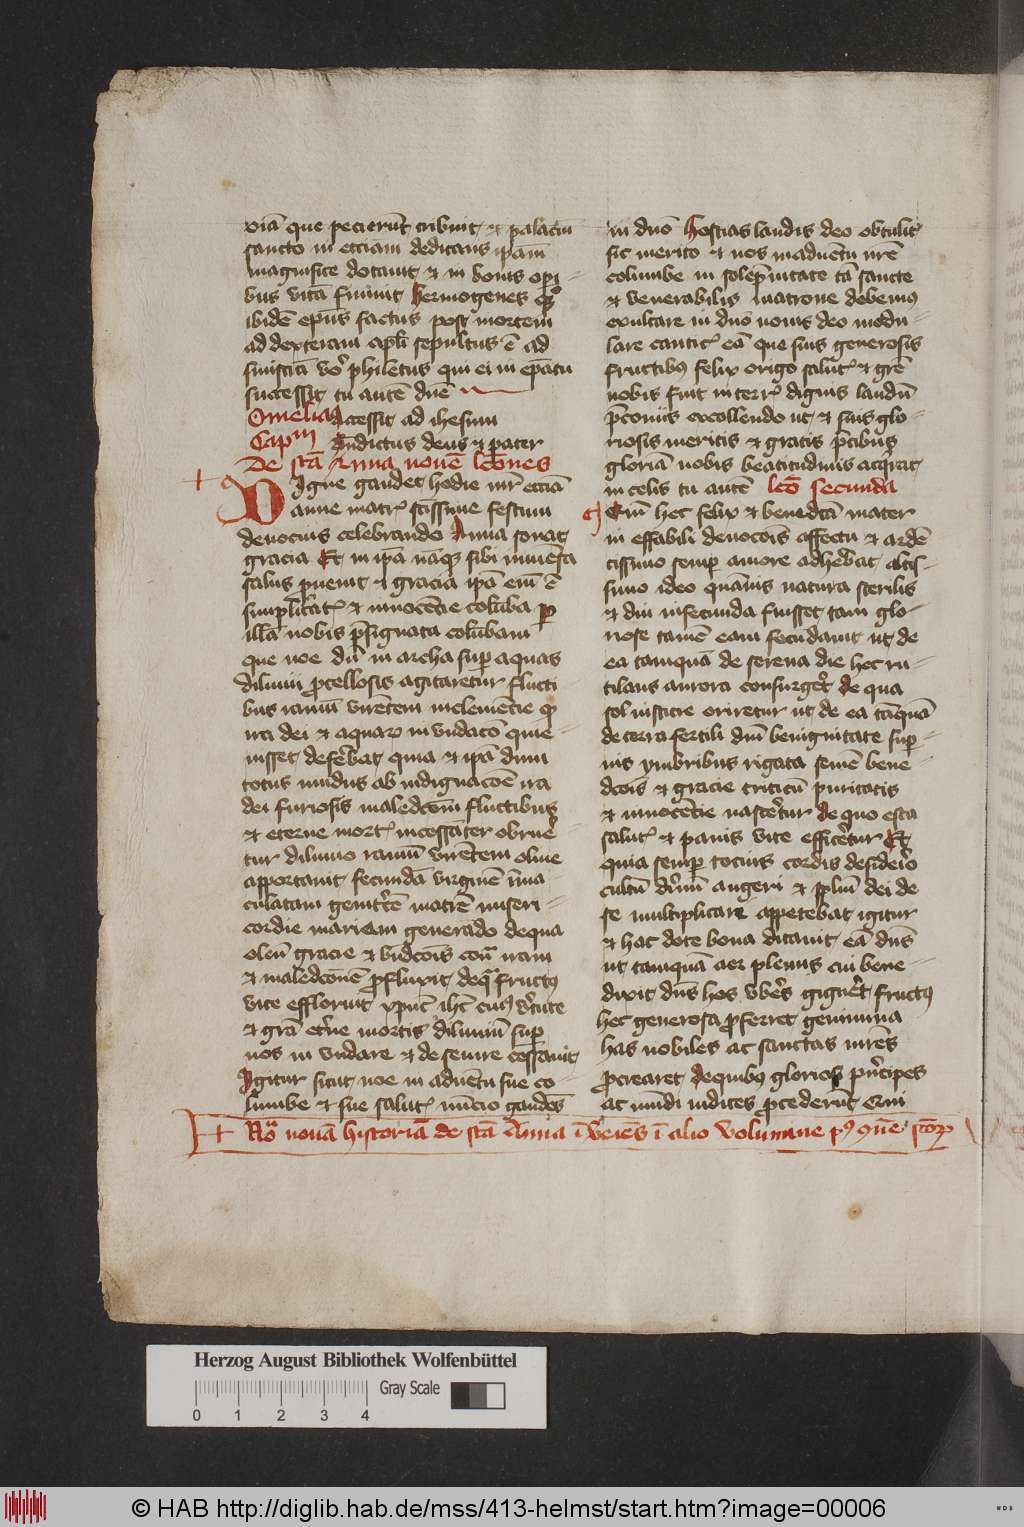 xiā que pecierūt tribuit et palaciū
sancto in ecciam dedicans ipām
magnifice dotauit et in bonis opi-
bus vitā finiuit hermogenes
ibidē epūs factus post mortem
ad dexteram apl'i sepultus ē ad
sinistrā vō philetus qui ei in epātu
successit tu autē dnē
Omelia Accessit ad ihesum
Capm Bn̄dictus deus et pater
De scā Anna nouē lcōnes
Digne gaudet hodie nr̄ eccīa
anne matris scīssime festum
deuocius celebrando Anna sonat
gracia Et in ipā nāque sibi inuēta
salus puenit et gracia ipā enī ē
simplicitatis et innocēcie colūba per
illā nobis p̄signata colūbam
que noe dū in archa super aquas
diluuii procellosis agitaretur flucti
bus ramū virētem inclemēcie
ira dei et aquarum inūdacōē quie-
uisset deferebat quia et ipā dum
totus mūdus ab indignacōē ira
dei furiosis maledcōnū fluctibus
et eterne mortis incessāter obrue-
tur diluuio ramū virētem oliue
apportauit fecundā virginē īma-
culatam genitricē matrē miseri-
cordie mariam generādo de qua
oleū gracie et bn̄dcōis contra iram
et maledcōnē profluxit de qua fructus
vite effloruit xpūc ihc cuius v̄tute
et grā et'ne mortis diluuiū super
nos in vndare et deseuire cessauit
Igitur sicut noe in aduētu sue co-
lūmbe et sue salutis nūcio gaudēs
in dn̄o hostias laudis deo obtulit
sic merito et nos in aduētu nr̄e
columbe in solēpnitate tā sancte
et venerabilis matrone debemus
exultare in dn̄o nouis deo modu-
lare canticis eā que suis generosis
fructibus felix origo salutis et grē
nobis fuit in terris dignis laudū
p̄coniis excollendo ut et suis glo-
riosis meritis et gratis p̄cibus
gloriā nobis beatitudinis acq̄rat
in celis tu autē Lcō secunda
Enī hec felix et benedcā mater
in effabili deuocōis affectu et ardē
tissimo semper amore adhebat altis-
simo ideo quāuis natura sterilis
et diu infecunda fuisset tam glo-
riose tamē eam fecūdauit ut de
ea tamquā de serena die hec ru-
tilans aurora consurgeret de qua
sol iusticie oriretur ut de ea tāquā
de terra fertili diuī benignitate super-
nis ymbribus rigata semē bene-
dcōis et gracie triticū puritatis
et innocēcie nasceretur de quo esca
salutis et panis vite efficeretur Et
quia semper tocius cordis desiderio
cultū diuinū augeri et pplm̄ dei de
se multiplicare appetebat igitur
et hac dote bona ditauit eā dn̄s
ut tamquā ager plenus cui bene-
dixit dn̄s hos vberes gigneret fructus
hec generosa proferret germina
has nobiles ac sanctas mr̄es
procrearet de quibus gloriosi pn̄cipes
ac mūdi iudices procederēt
Ro nouā historiā de scā Anna īueies ī alio volumine
Herzog August Bibliothek Wolfenbüttel
Gray Scale
0 1 2 3 4
© HAB http://diglib.hab.de/mss/413-helmst/start.htm?image=00006
WDB